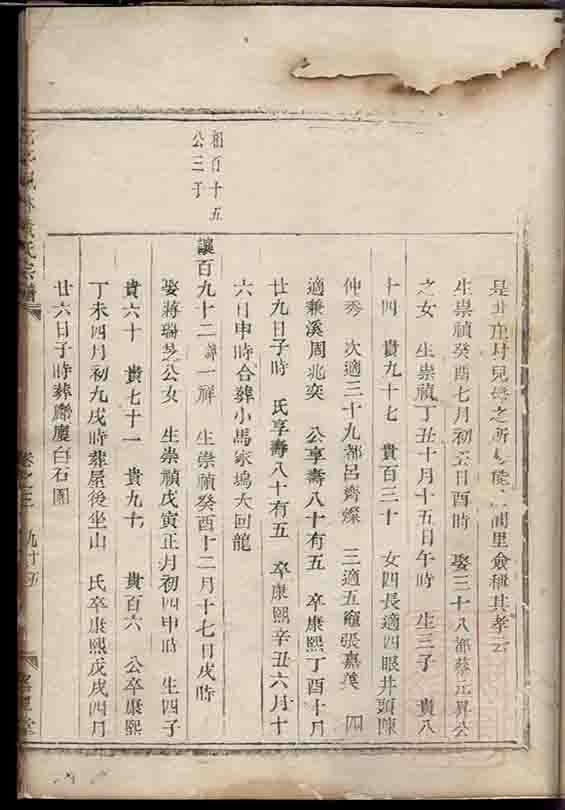 是 里僉稱其孝云
生崇禎癸酉七月初五日酉時 娶三十八都蔡 公
之女 生崇禎丁丑十月十五日午時 生三子 貴八
十四 貴九十七 貴百三十 女四長適四眼井頭陳
仲秀 次適三十九都呂齊燦 三適五竈張嘉 四
適兼溪周兆奕 公享壽八十有五 卒康熙丁酉十月
廿九日子時 氏享壽八十有五 卒康熙辛丑六月十
六日申時合葬小馬家塢大回龍
相百十五
公三子
讓百九十二 諱一祥 生崇禎癸酉十二月十七日戌時
娶蔣 公女 生崇禎戊寅正月初四申時 生四子
貴六十 貴七十一 貴九十 貴百六 公卒康熙
丁未四月初九戌時葬屋後坐山 氏卒康熙戊戌四月
廿六日子時葬 廈白石圍
林黃氏宗譜
卷之三
九十五
堂